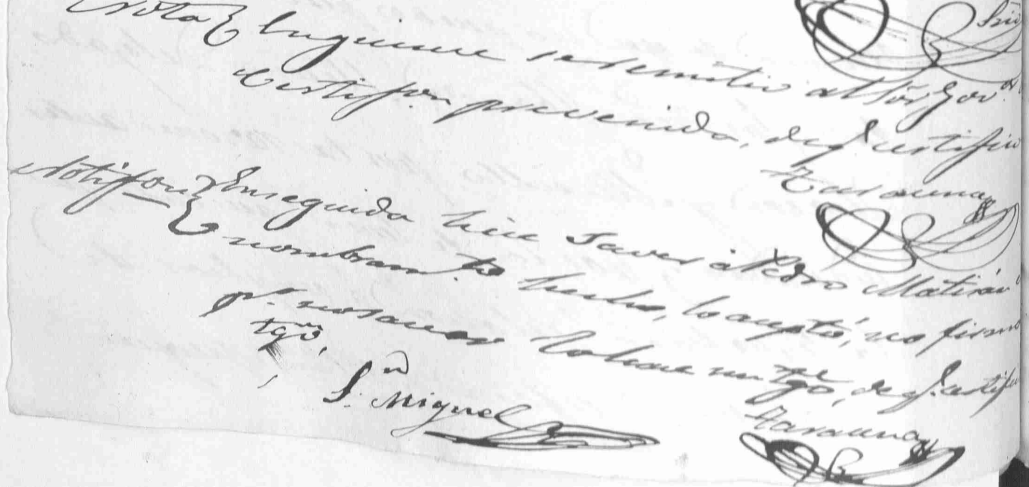 Nota} En quince se remitio al Sor Gov.or
Certifon prevenida, de q.e certifico
Taraunay
Notifon} Enseguida hice saver á Pedro Matirá
nombram.to hecho, lo aceptó, no firmó
p.r no saver lo hace un tgo, de q.e certifi
tgo,
S.n Miguel
Taraunay